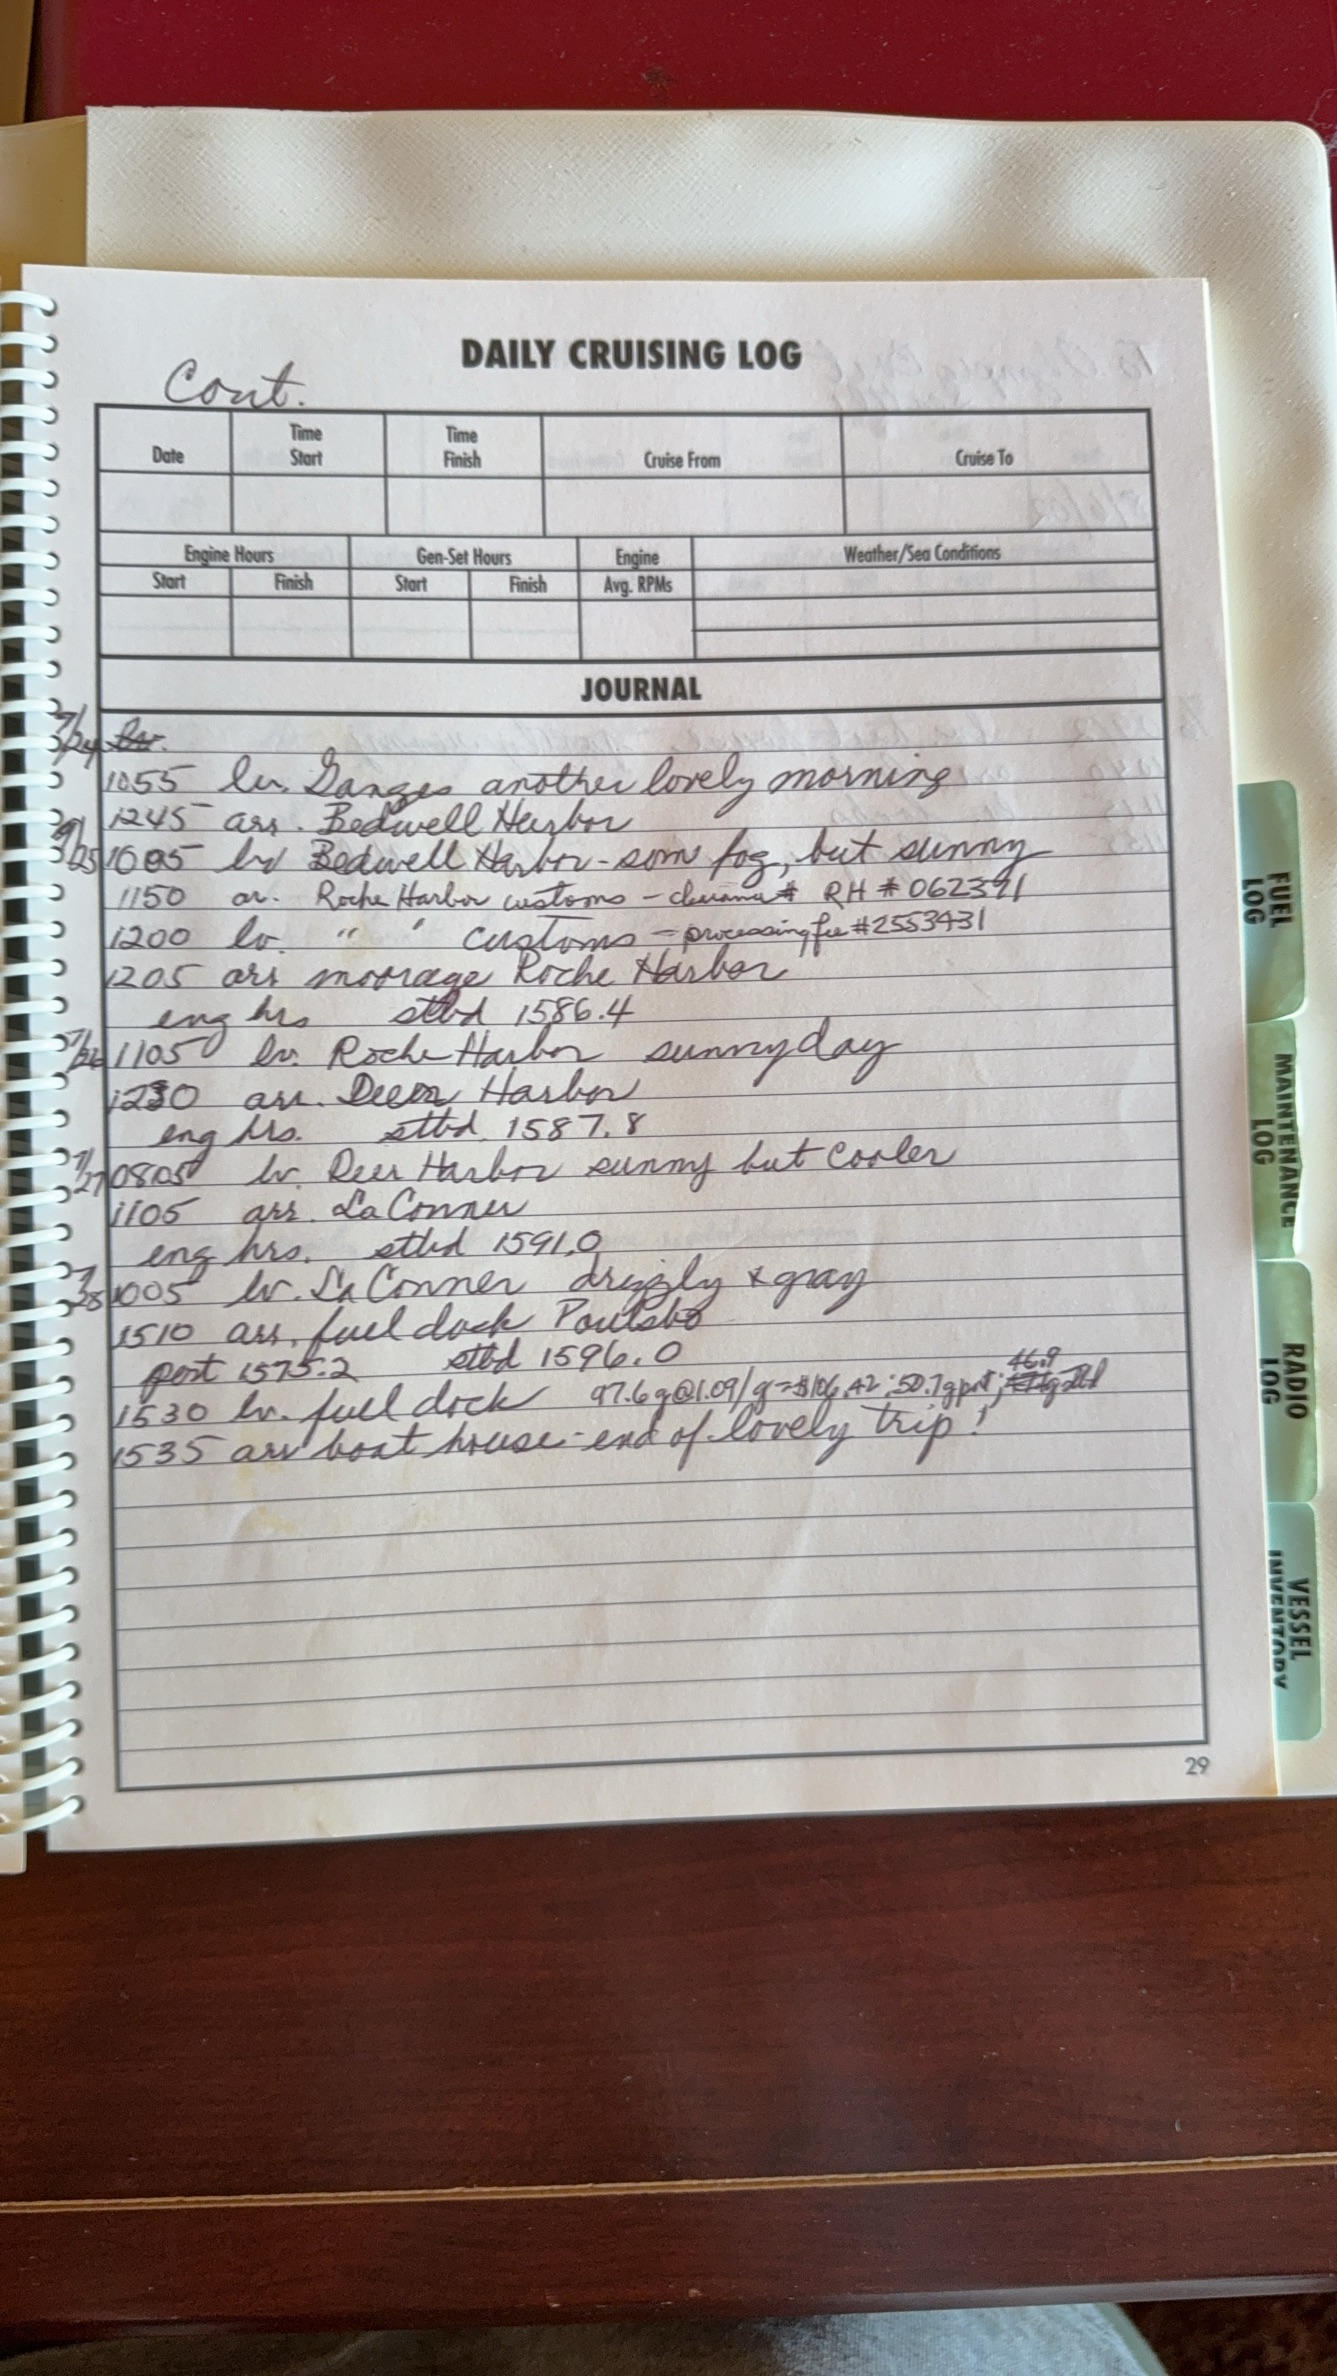 DAILY CRUISING LOG
Cont.
Date Time Start Time Finish Cruise From Cruise To
Engine Hours Gen-Set Hours Engine Weather/Sea Conditions
Start Finish Start Finish Avg. RPMs
JOURNAL
7/24 lv.
1055 lv. Ganges another lovely morning
1245 arr. Bedwell Harbor
7/25 1005 lv Bedwell Harbor - som fog, but sunny
1150 ar. Roche Harbor customs - clearance # RH # 062391
1200 lv. " " customs - processing fee #2553431
1205 arr moorage Roche Harbor
eng hrs stbd 1586.4
7/26 1105 lv. Roche Harbor sunny day
1230 arr. Deer Harbor
eng hrs. stbd 1587.8
7/27 0805 lv. Deer Harbor sunny but cooler
1105 arr. La Conner
eng hrs. stbd 1591.0
7/28 1005 lv. La Conner drizzly & gray
1510 arr. fuel dock Poulsbo
port 1575.2 stbd 1596.0
1530 lv. fuel dock 97.6g@1.09/g=$106.42; 50.7g port; 46.9 g stbd
1535 arr boat house - end of lovely trip!
29
FUEL LOG
MAINTENANCE LOG
RADIO LOG
VESSEL INVENTORY